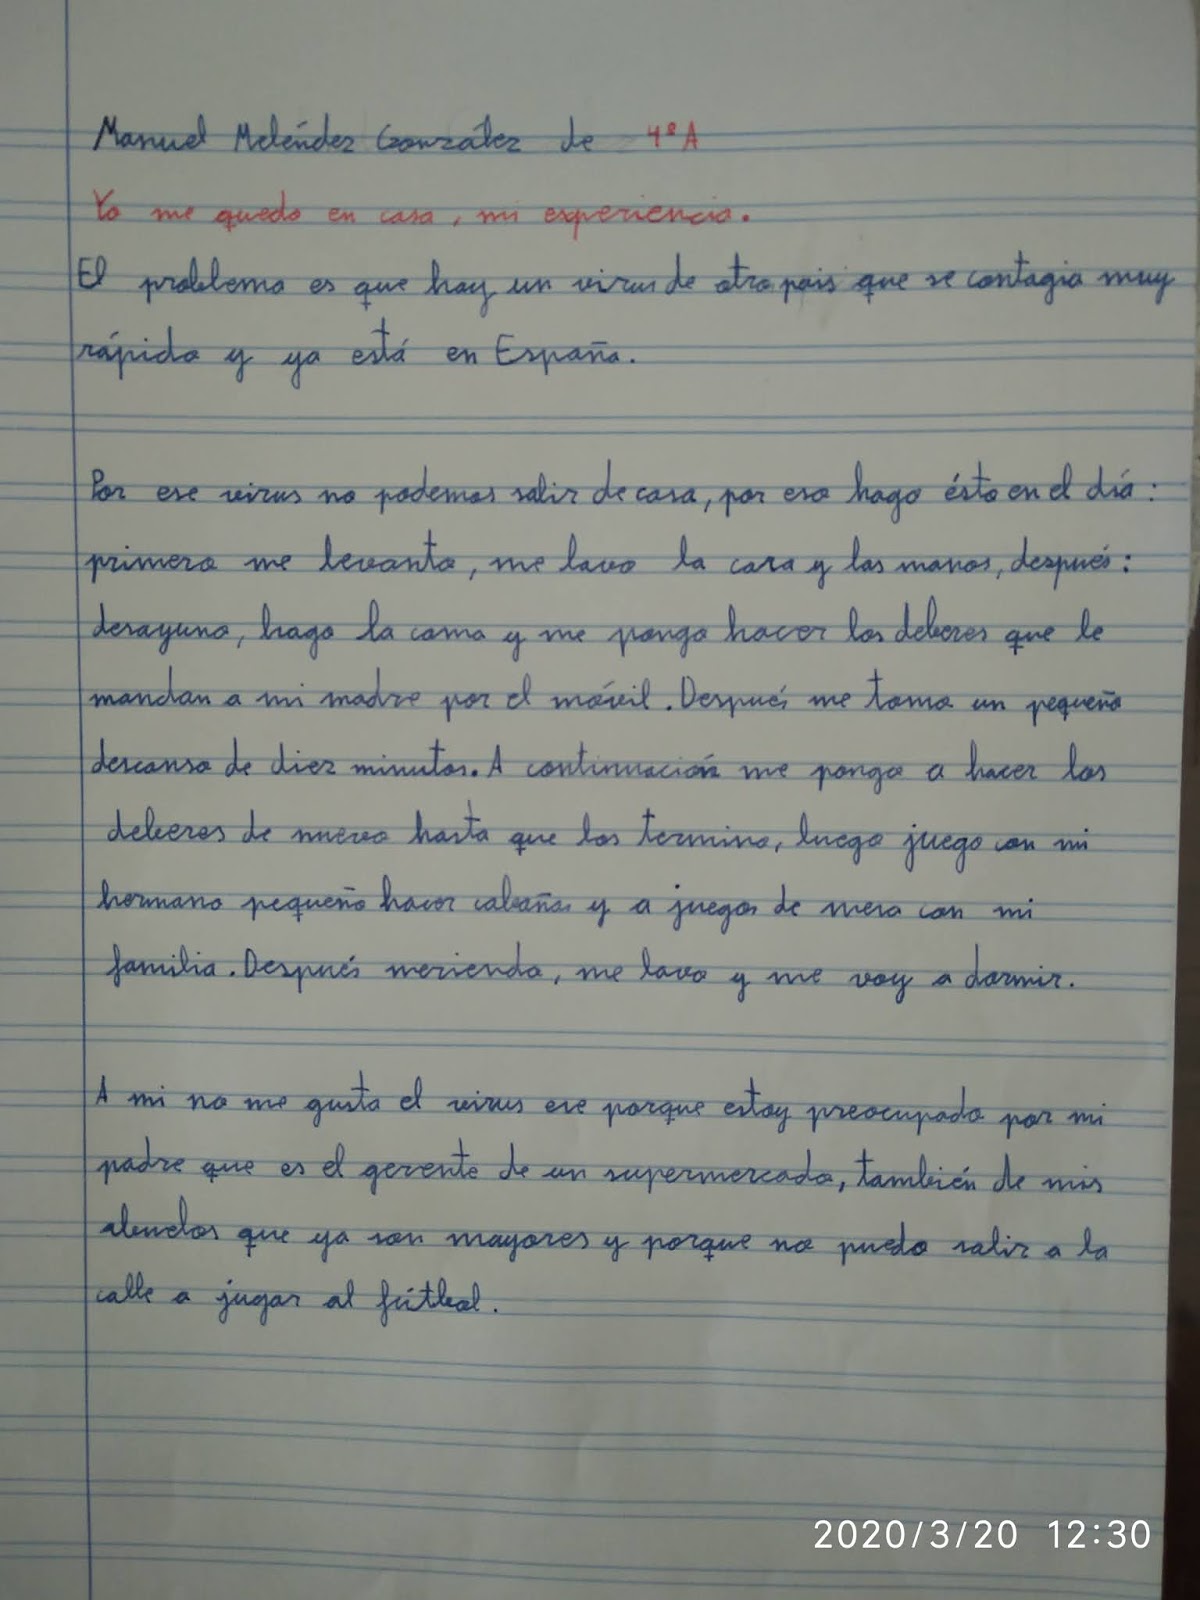 Manuel Meléndez González de 4ºA
Yo me quedo en casa, mi experiencia.
El problema es que hay un virus de otro pais que se contagia muy
rápido y ya está en España.
Por ese virus no podemos salir de casa, por eso hago ésto en el día:
primero me levanto, me lavo la cara y las manos, después:
desayuno, hago la cama y me pongo hacer los deberes que le
mandan a mi madre por el móvil. Después me tomo un pequeño
descanso de diez minutos. A continuación me pongo a hacer los
deberes de nuevo hasta que los termino, luego juego con mi
hermano pequeño hacer cabañas y a juegos de mesa con mi
familia. Después meriendo, me lavo y me voy a dormir.
A mi no me gusta el virus ese porque estoy preocupado por mi
padre que es el gerente de un supermercado, también de mis
abuelos que ya son mayores y porque no puedo salir a la
calle a jugar al fútbol.
2020/3/20 12:30